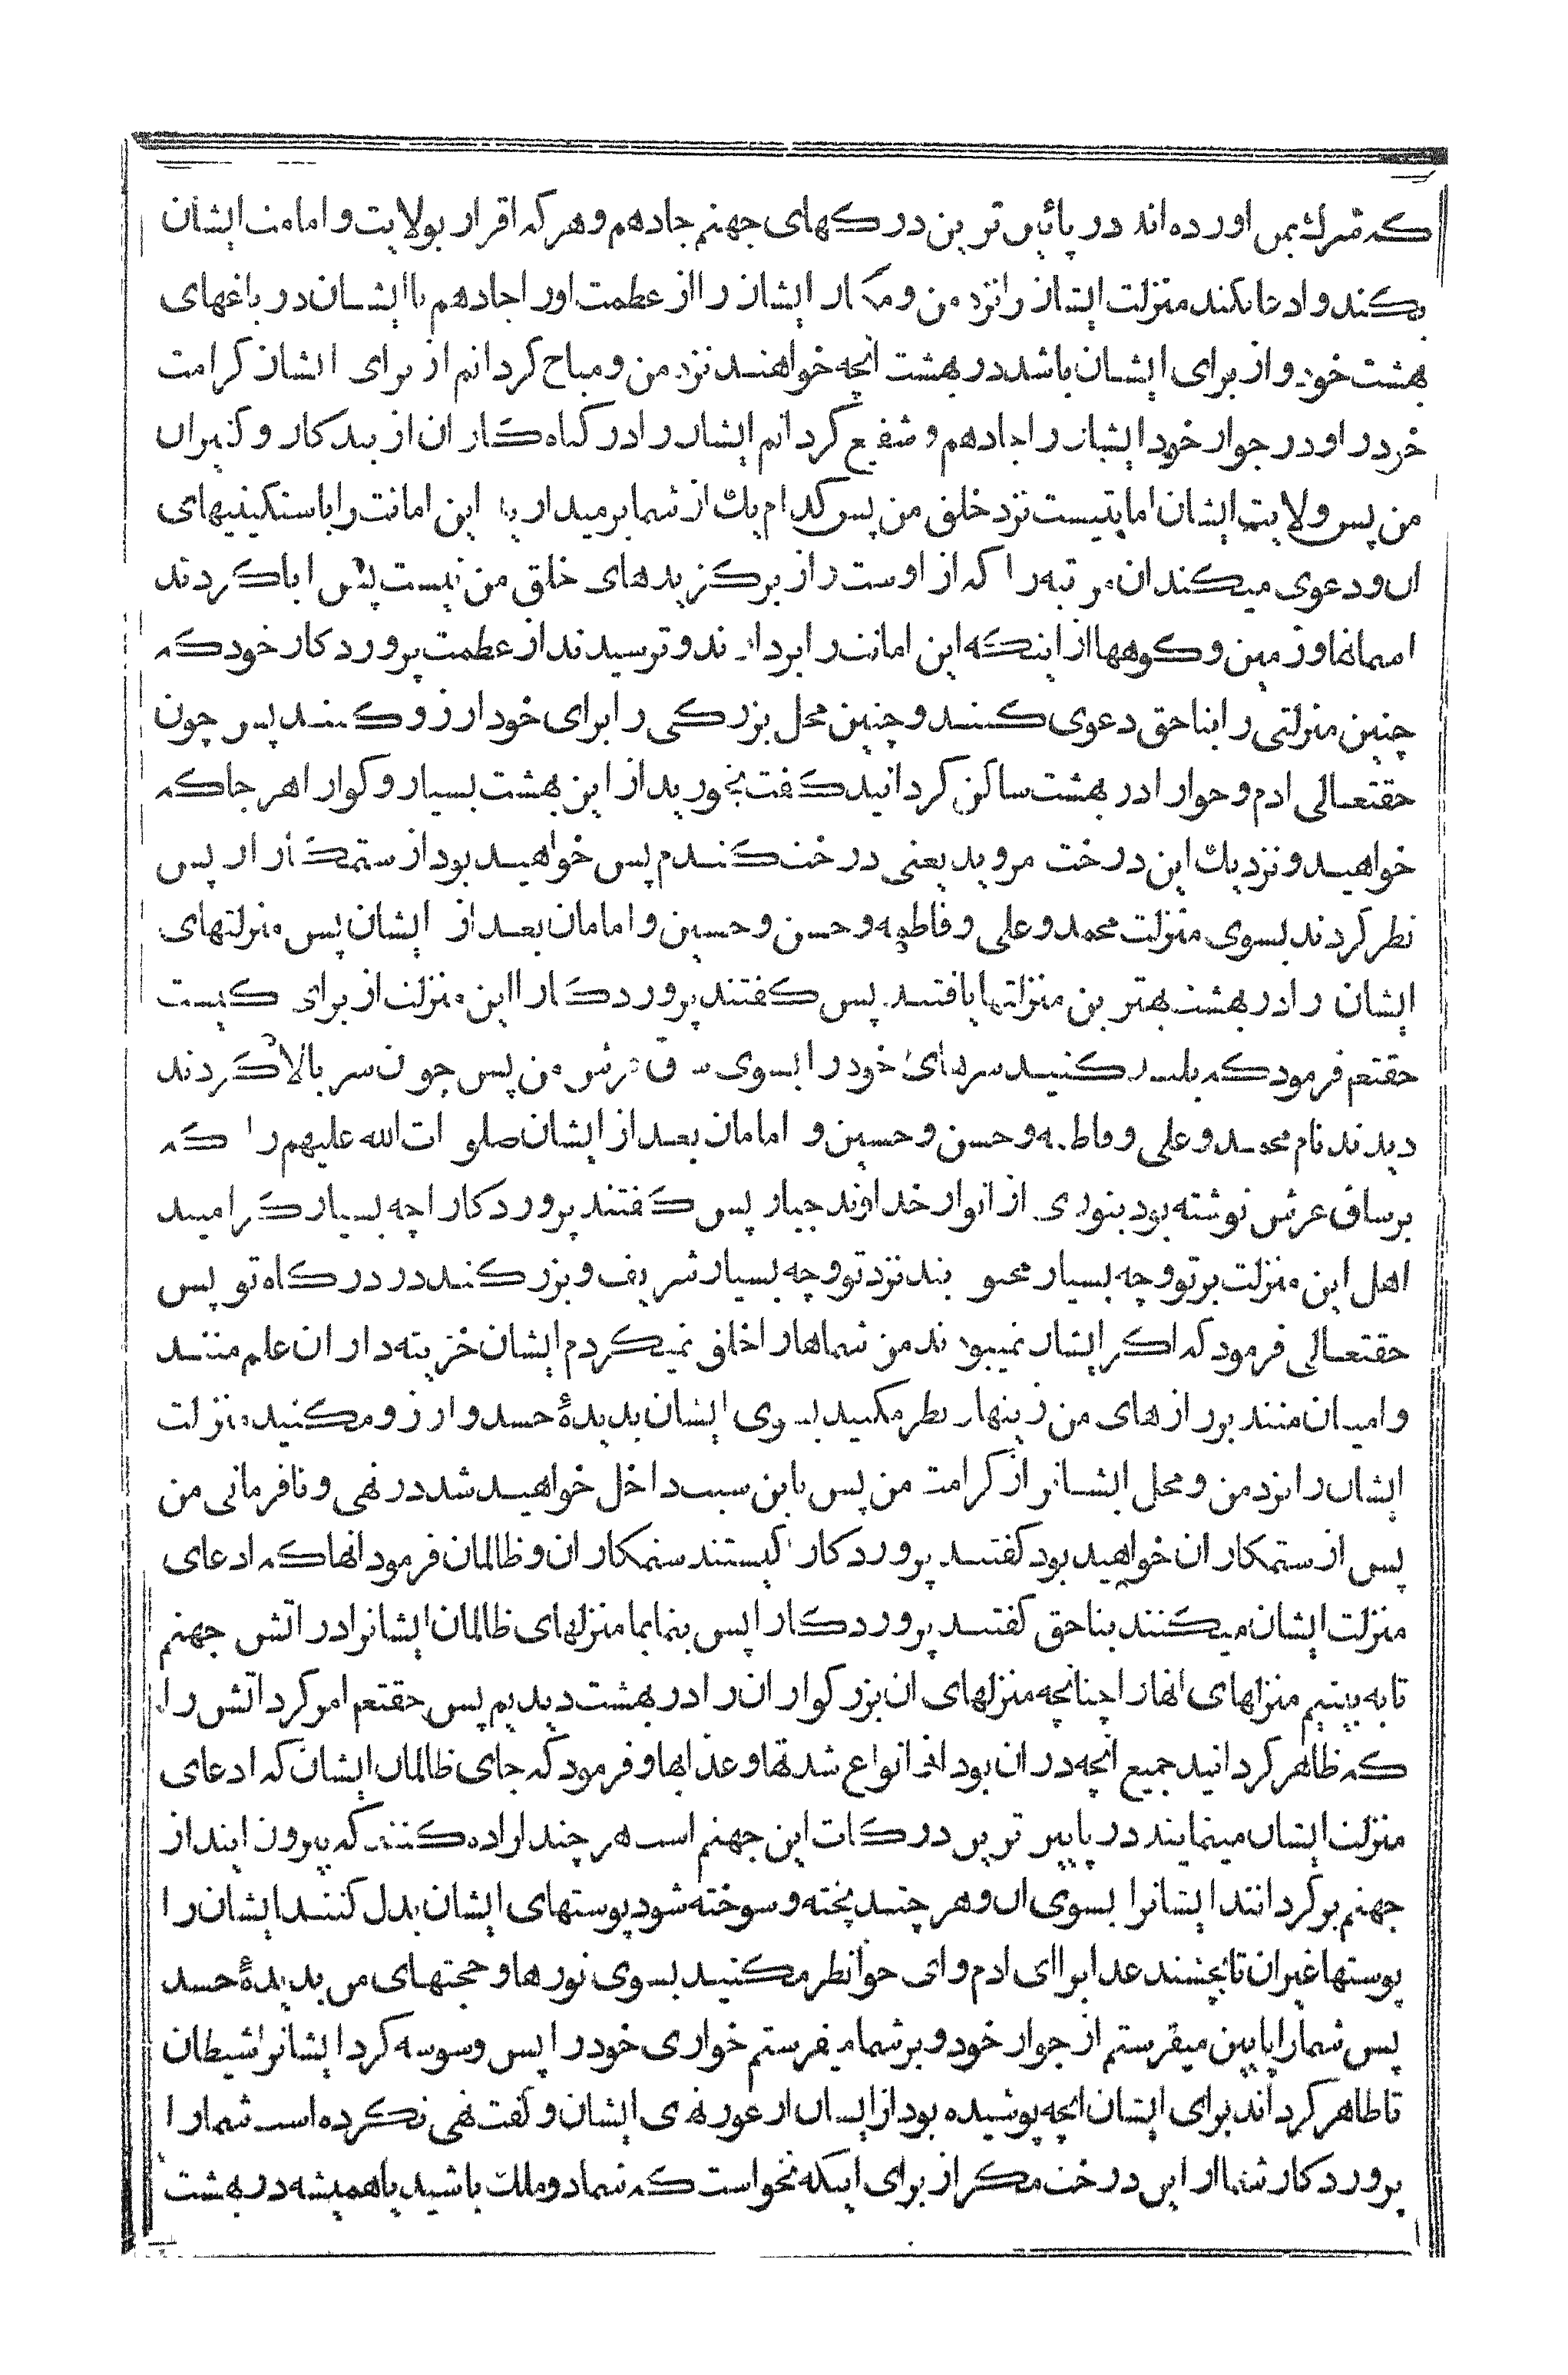 که شرك بمن اورده‌اند در پائین ترین درکهای جهنم جادهم و هر که اقرار بولایت و امامت ایشان
بکند و ادعا نکند منزلت ایشان را نزد من و مکان ایشان را از عظمت اورا جادهم با ایشان در باغهای
بهشت خود و از برای ایشان باشد در بهشت انچه خواهند نزد من و مباح کردانم از برای ایشان کرامت
خود را و در جوار خود ایشان را جادهم و شفیع کردانم ایشان را در کناه کاران از بندکان و کنیزان
من پس ولایت ایشان امانتیست نزد خلق من پس کدام یك از شما برمیدارید این امانت را با سنکینیهای
ان و دعوی میکند ان مرتبه را که از اوست و از برکزیدهای خلق من نیست پس ابا کردند
اسمانها و زمین و کوهها از اینکه این امانت را بردارند و ترسیدند از عظمت پروردکار خود که
چنین منزلتی را بناحق دعوی کنند و چنین محل بزرکی را برای خود ارزو کنند پس چون
حقتعالی ادم و حوا را در بهشت ساکن کردانید کفت بخورید از این بهشت بسیار و کوارا هر جا که
خواهید و نزدیك این درخت مروید یعنی درخت کندم پس خواهید بود از ستمکاران پس
نظر کردند بسوی منزلت محمد و علی و فاطمه و حسن و حسین و امامان بعد از ایشان پس منزلتهای
ایشان را در بهشت بهترین منزلتها یافتند پس کفتند پروردکارا این منزلت از برای کیست
حقتعم فرمود که بلند کنید سرهای خود را بسوی ساق عرش من پس چون سر بالا کردند
دیدند نام محمد و علی و فاطمه و حسن و حسین و امامان بعد از ایشان صلوات الله علیهم را که
بر ساق عرش نوشته بود بنوری از انوار خداوند جبار پس کفتند پروردکارا چه بسیار کرامیند
اهل این منزلت بر تو و چه بسیار محبوبند نزد تو و چه بسیار شریف و بزرکند در درکاه تو پس
حقتعالی فرمود که اکر ایشان نمیبودند من شماهارا خلق نمیکردم ایشان خزینه داران علم منند
و امینان منند بر رازهای من زینهار نظر مکنید بسوی ایشان بدیدهٔ حسد و ارزو مکنید منزلت
ایشان را نزد من و محل ایشانرا از کرامت من پس باین سبب داخل خواهید شد در نهی و نافرمانی من
پس از ستمکاران خواهید بود کفتند پروردکارا کیستند ستمکاران و ظالمان فرمود انها که ادعای
منزلت ایشان میکنند بناحق کفتند پروردکارا پس بنما بما منزلهای ظالمان ایشانرا در اتش جهنم
تا به بینیم منزلهای انها را چنانچه منزلهای ان بزرکواران را در بهشت دیدیم پس حقتعم امر کرد اتش را
که ظاهر کردانید جمیع انچه در ان بود از انواع شدتها و عذابها و فرمود که جای ظالمان ایشان که ادعای
منزلت ایشان مینمایند در پایین ترین درکات این جهنم است هر چند اراده کنند که بیرون ایند از
جهنم برکردانند ایشانرا بسوی ان و هر چند پخته و سوخته شود پوستهای ایشان بدل کنند ایشان را
پوستها غیر ان تا بچشند عذابرا ای ادم و ای حوا نظر مکنید بسوی نورها و حجتهای من بدیدهٔ حسد
پس شمارا پایین میفرستم از جوار خود و بر شما میفرستم خواری خود را پس وسوسه کرد ایشانرا شیطان
تا ظاهر کرداند برای ایشان انچه پوشیده بود از ایشان از عورتهای ایشان و کفت نهی نکرده است شمارا
پروردکار شما از این درخت مکر از برای اینکه نخواست که شما دو ملك باشید یا همیشه در بهشت